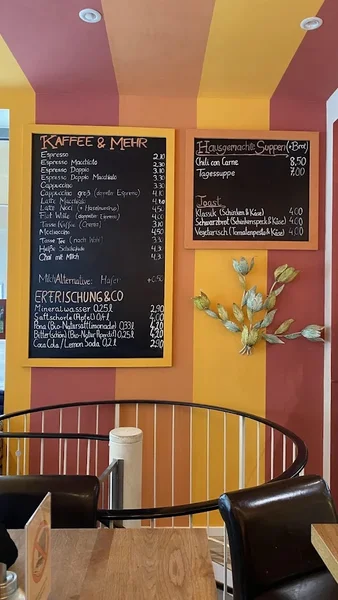 KAFFEE & MEHR
Espresso 2.10
Espresso Macchiato 2.30
Espresso Doppio 3.10
Espresso Doppio Macchiato 3.30
Cappuccino 3.30
Cappuccino groß (doppelter Espresso) 4.10
Latte Macchiato
Latte Nocci (+ Haselnusssirup) 4.50
Flat White (doppelter Espresso) 4.00
Tasse Kaffee (Crema) 3.10
Mochaccino 4.50
Tasse Tee (nach Wahl) 3.30
Heiße Schokolade
Chai mit Milch 4.30
Milch Alternative: Hafer +0.50
ERFRISCHUNG & CO
Mineralwasser 0,25 l 2,90
Saftschorle (Apfel) 0,4 l 4,00
Pona (Bio-Natursaftlimonade) 0,33 l 4,20
(Bio-Natur Aperitif) 0,25 l 4,20
Coca Cola / Lemon Soda 0,2 l 2,90
Hausgemachte Suppen (+Brot)
Chili con Carne 8,50
Tagessuppe 7.00
Toast
Klassik (Schinken & Käse) 4,00
Schwarzbrot (Schinkenspeck & Käse) 4,00
Vegetarisch (Tomatenpesto & Käse) 4,00